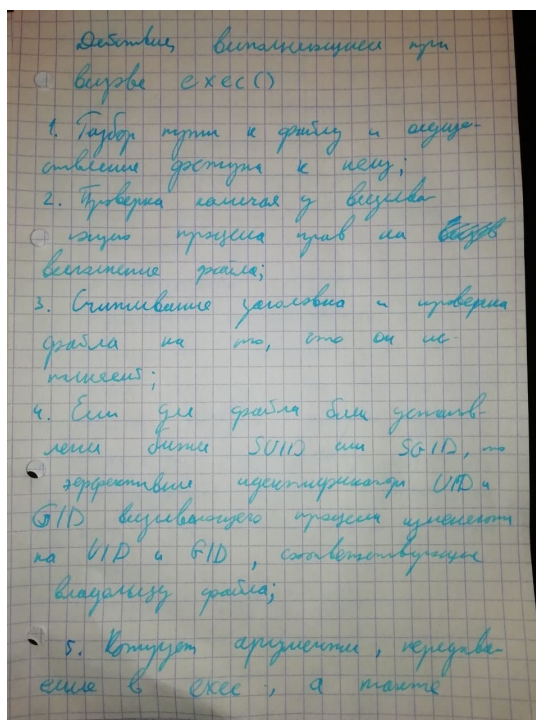 Действия, выполняющиеся при
вызове exec()
1. Разбор пути к файлу и осуще-
ствление доступа к нему;
2. Проверка наличая у вызыва-
ющего процесса прав на
выполнение файла;
3. Считывание заголовка и проверка
файла на то, что он ис-
полняемый;
4. Если для файла были установ-
лены биты SUID или SGID, то
эффективные идентификаторы UID и
GID вызывающего процесса изменяются
на UID и GID, соответствующие
владельцу файла;
5. Копирует аргументы, передава-
емые в exec, а также